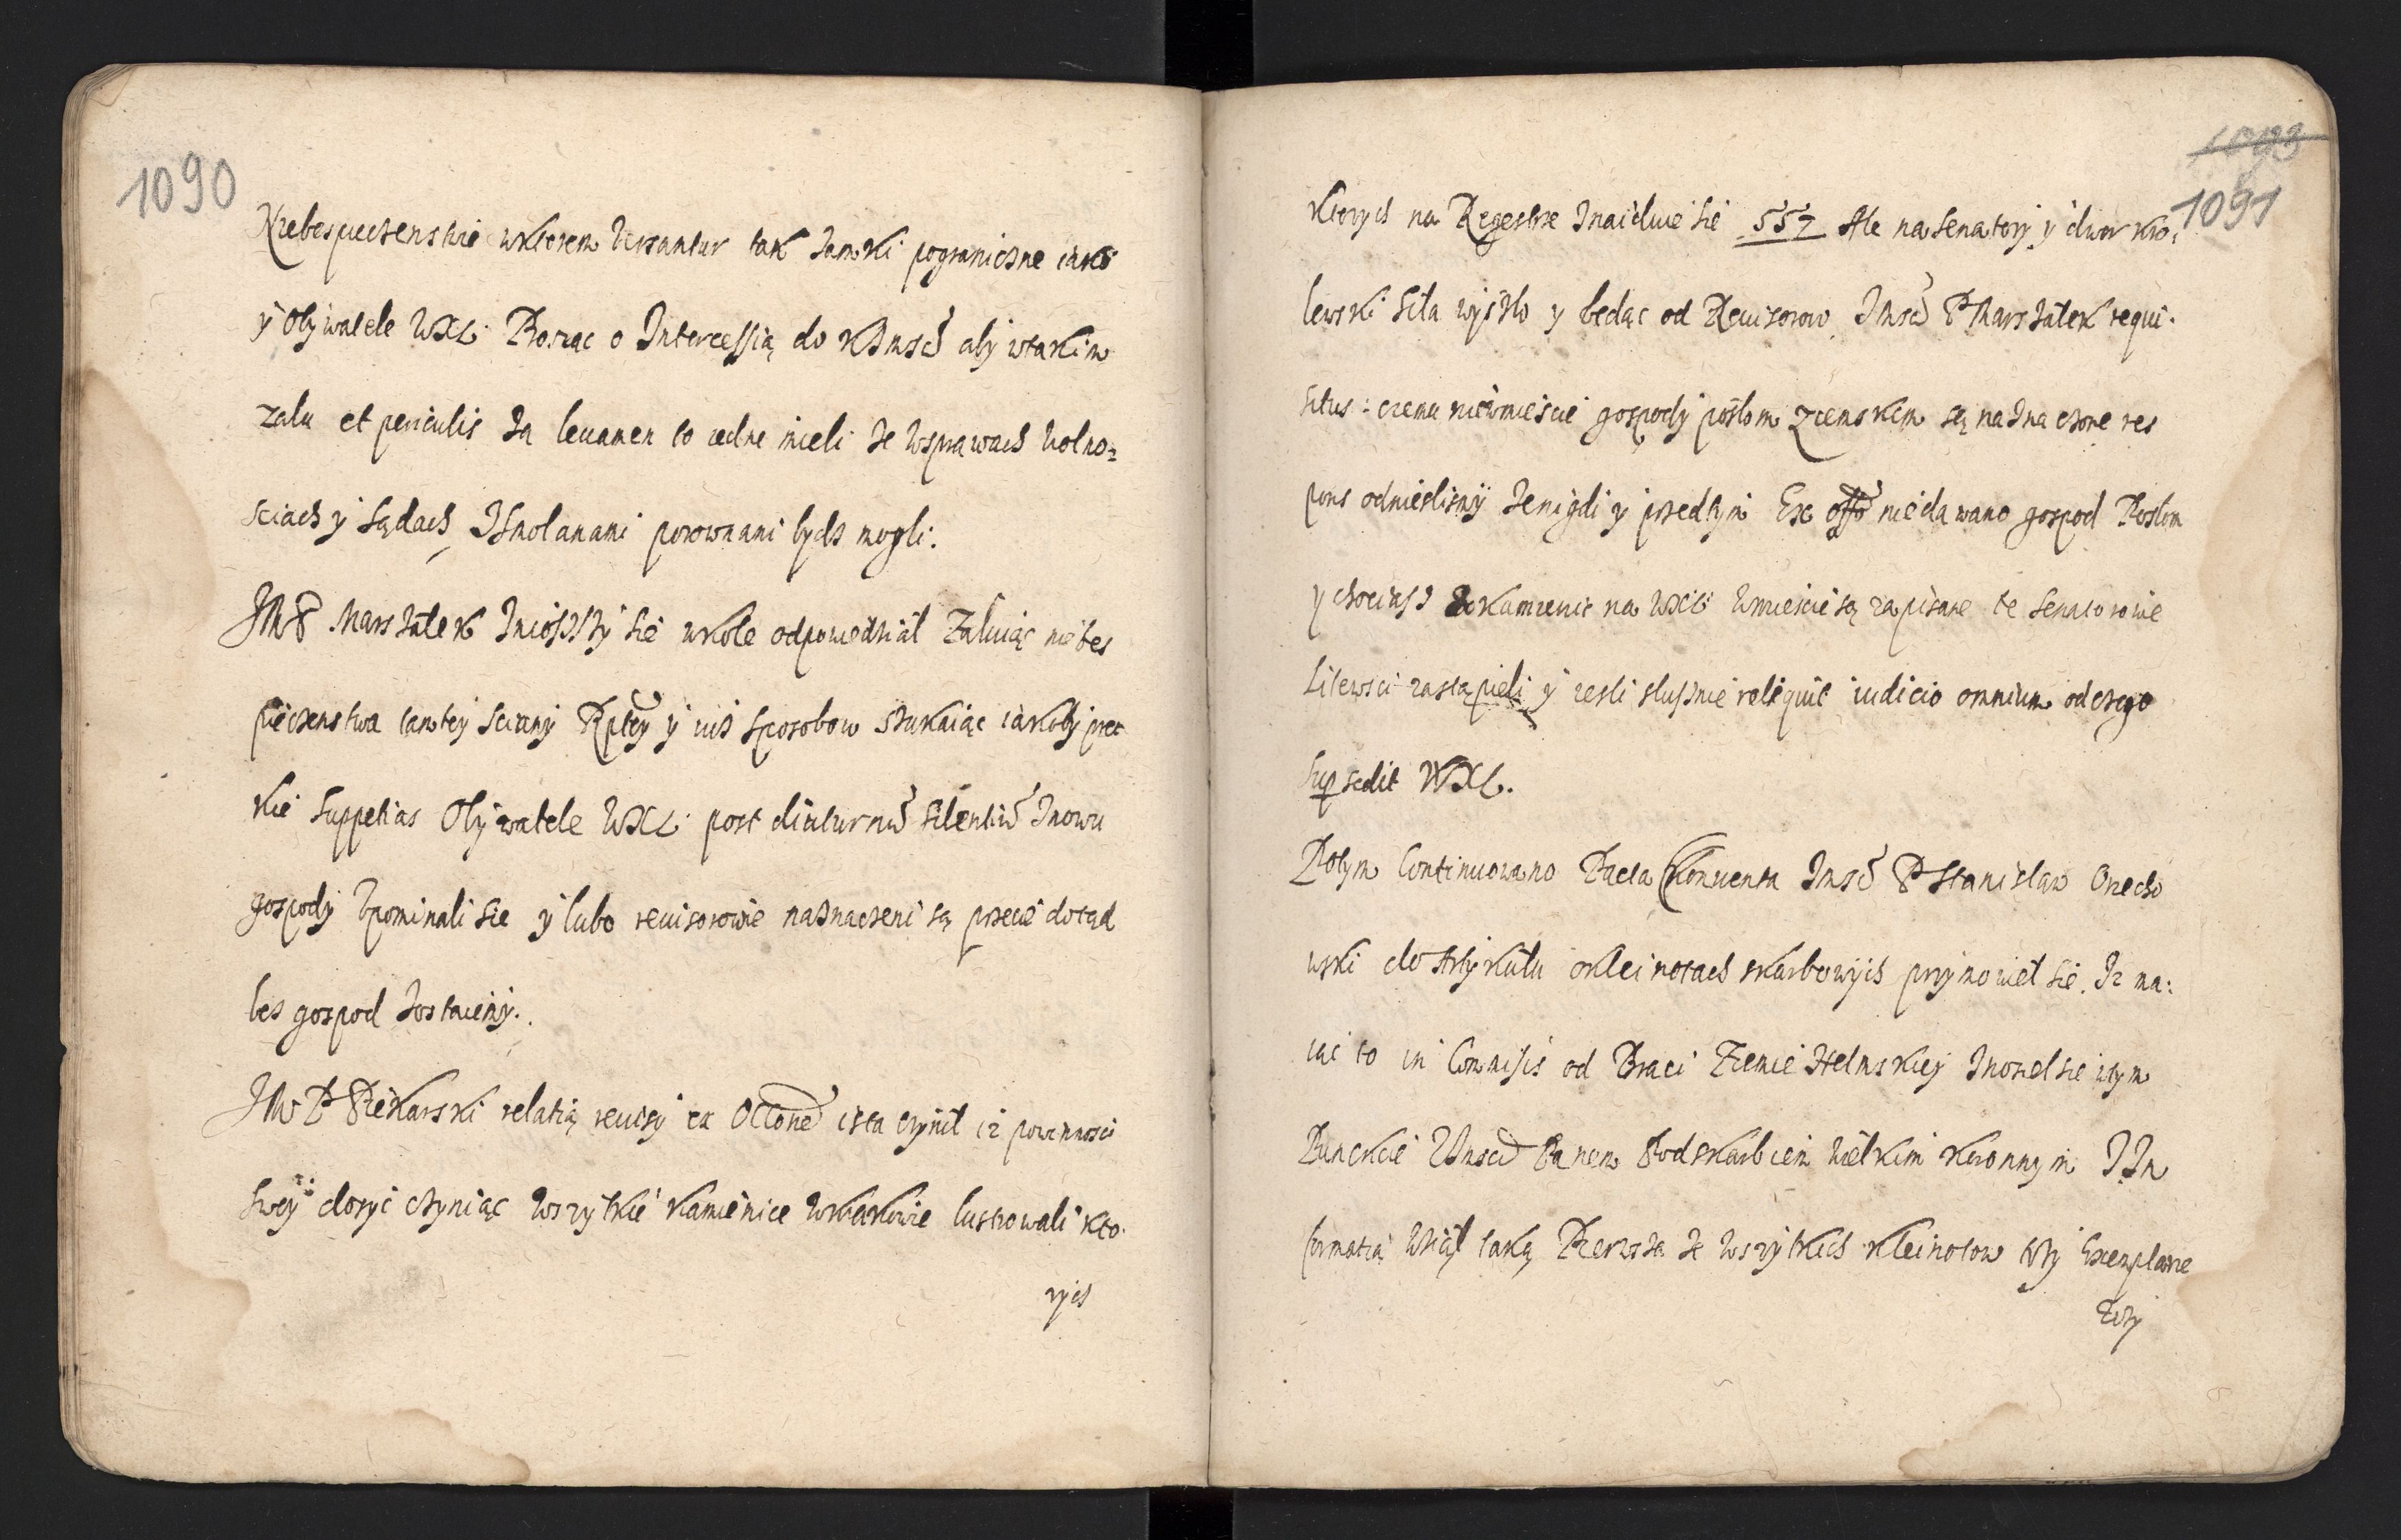 1090
Niebespieczenstwie wktorem versantur tak zamki pograniczne iako
y Obywatele WXL. Prosząc o Intercessią do KJmscі aby wtakim
zalu et periculis za levamen to iedne mieli ze wsprawach wolno=
sciach y sądach, zSmolanami porownani bydz mogli.
JMP Marszałek zniosszy sie wkole odpowiedział Załuiąc niebes
pieczenstwa tamtey sciany Rptey y iuż sposobow szukaiąc iakoby prę
kie suppetias Obywatele WXL. post diuturnū silentiū znowu
gospody vpominali sie y lubo reuisorowie naznaczeni są przecie dotąd
bes gospod zostaiemy.
JMP Piekarski relatią reuisy ex ista czynił iż powinnosci
swey dosyc czyniąc wszytkie kamienice wkrakowie lustrowali kto.
rych
1091
ktorych na Regestrze znaiduie sie 557 Ale na Senatory y dwor kro:
lewski siła wyszło y bedąc od Reuisorow Jmsci P Marszałek requi.
situs: czemu niewmiescie gospody posłom Ziemskim są naznaczone res
pons odnieslismy ze nigdi y przedtym Ex offō niedawano gospod Posłom
y chociasz kamienic na WXL wmiescie są zapisane te senatorowie
Litewsci zastąpieli y iesli słusznie reliquit iudicio omnium odczego
supsedit WXL.
Potym Continuowano Pacta Conuenta Jmsc P Stanisław Orzecho
wski do Artykułu okleinotach skarbowych przymowieł sie. Iż ma:
iąc to in Commisis od Braci Ziemie Helmskiey znosieł sie wtym
Punckcie zJmscią Panem Podskarbiem wielkim Koronnym I In
formatią wziął taką Pierwsza ze wszytkich kleinotow trzy Exemplarze
trzy